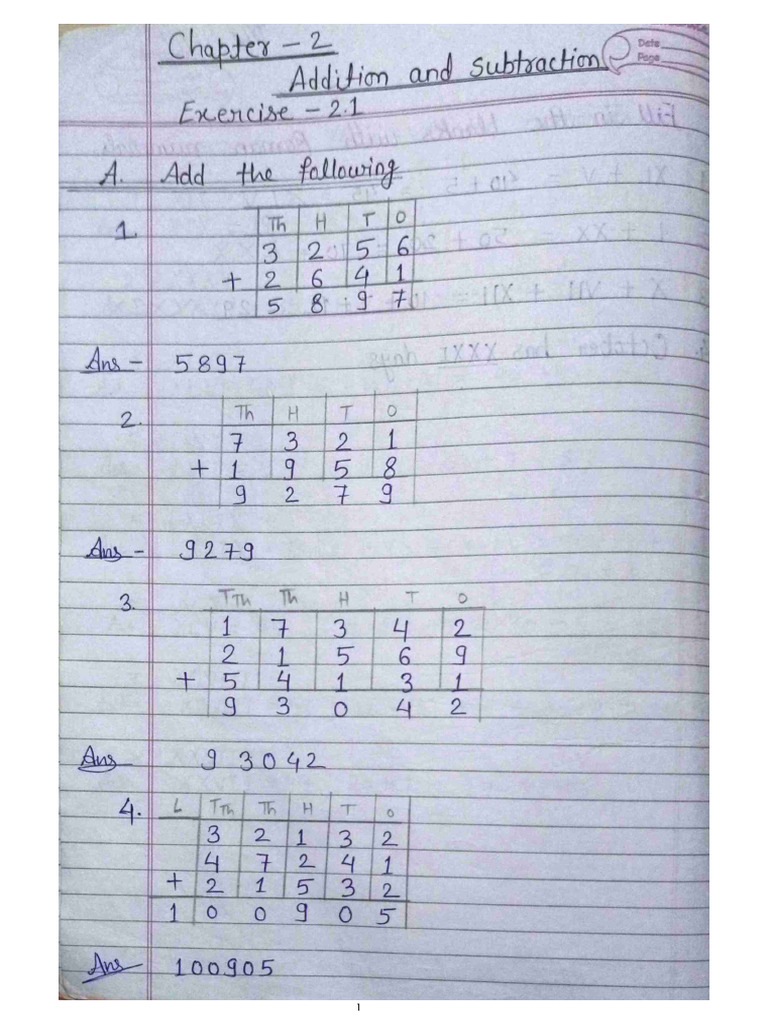 Chapter - 2
Date
Page
Addition and subtraction
Exercise - 2.1
A. Add the following
1.
Th H T O
3 2 5 6
+ 2 6 4 1
5 8 9 7
Ans - 5897
2.
Th H T O
7 3 2 1
+ 1 9 5 8
9 2 7 9
Ans - 9279
3.
TTh Th H T O
1 7 3 4 2
2 1 5 6 9
+ 5 4 1 3 1
9 3 0 4 2
Ans 93042
4.
L TTh Th H T O
3 2 1 3 2
4 7 2 4 1
+ 2 1 5 3 2
1 0 0 9 0 5
Ans 100905
1